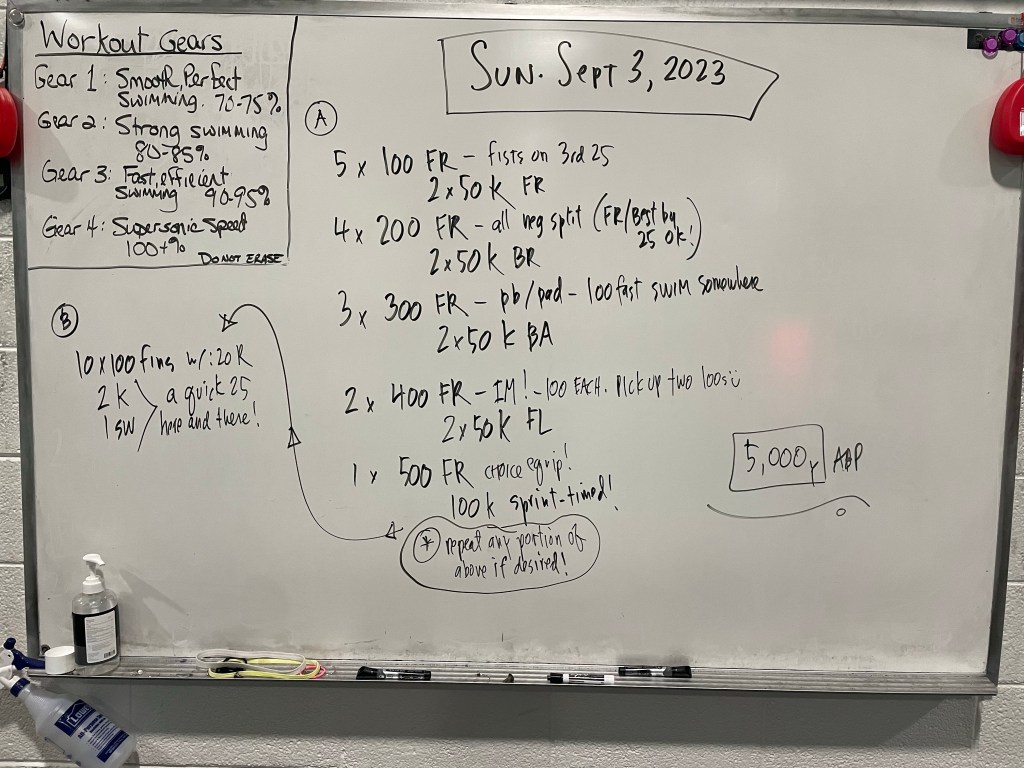 Workout Gears
Gear 1: Smooth, Perfect
Swimming. 70-75%
Gear 2: Strong swimming
80-85%
Gear 3: Fast, efficient
Swimming 90-95%
Gear 4: Supersonic Speed
100+%
DO NOT ERASE
SUN. SEPT 3, 2023
A
5 x 100 FR - fists on 3rd 25
2 x 50 K FR
4 x 200 FR - all neg split (FR/Best by
25 OK!)
2 x 50 K BR
3 x 300 FR - pb/pad - 100 fast swim somewhere
2 x 50 K BA
2 x 400 FR - IM! - 100 EACH. Pick up two 100s
2 x 50 K FL
1 x 500 FR choice equip!
100 K sprint-timed!
* repeat any portion of
above if desired!
B
10 x 100 fins w/ :20 R
2 K
1 SW
a quick 25
here and there!
5,000y
LOWE'S